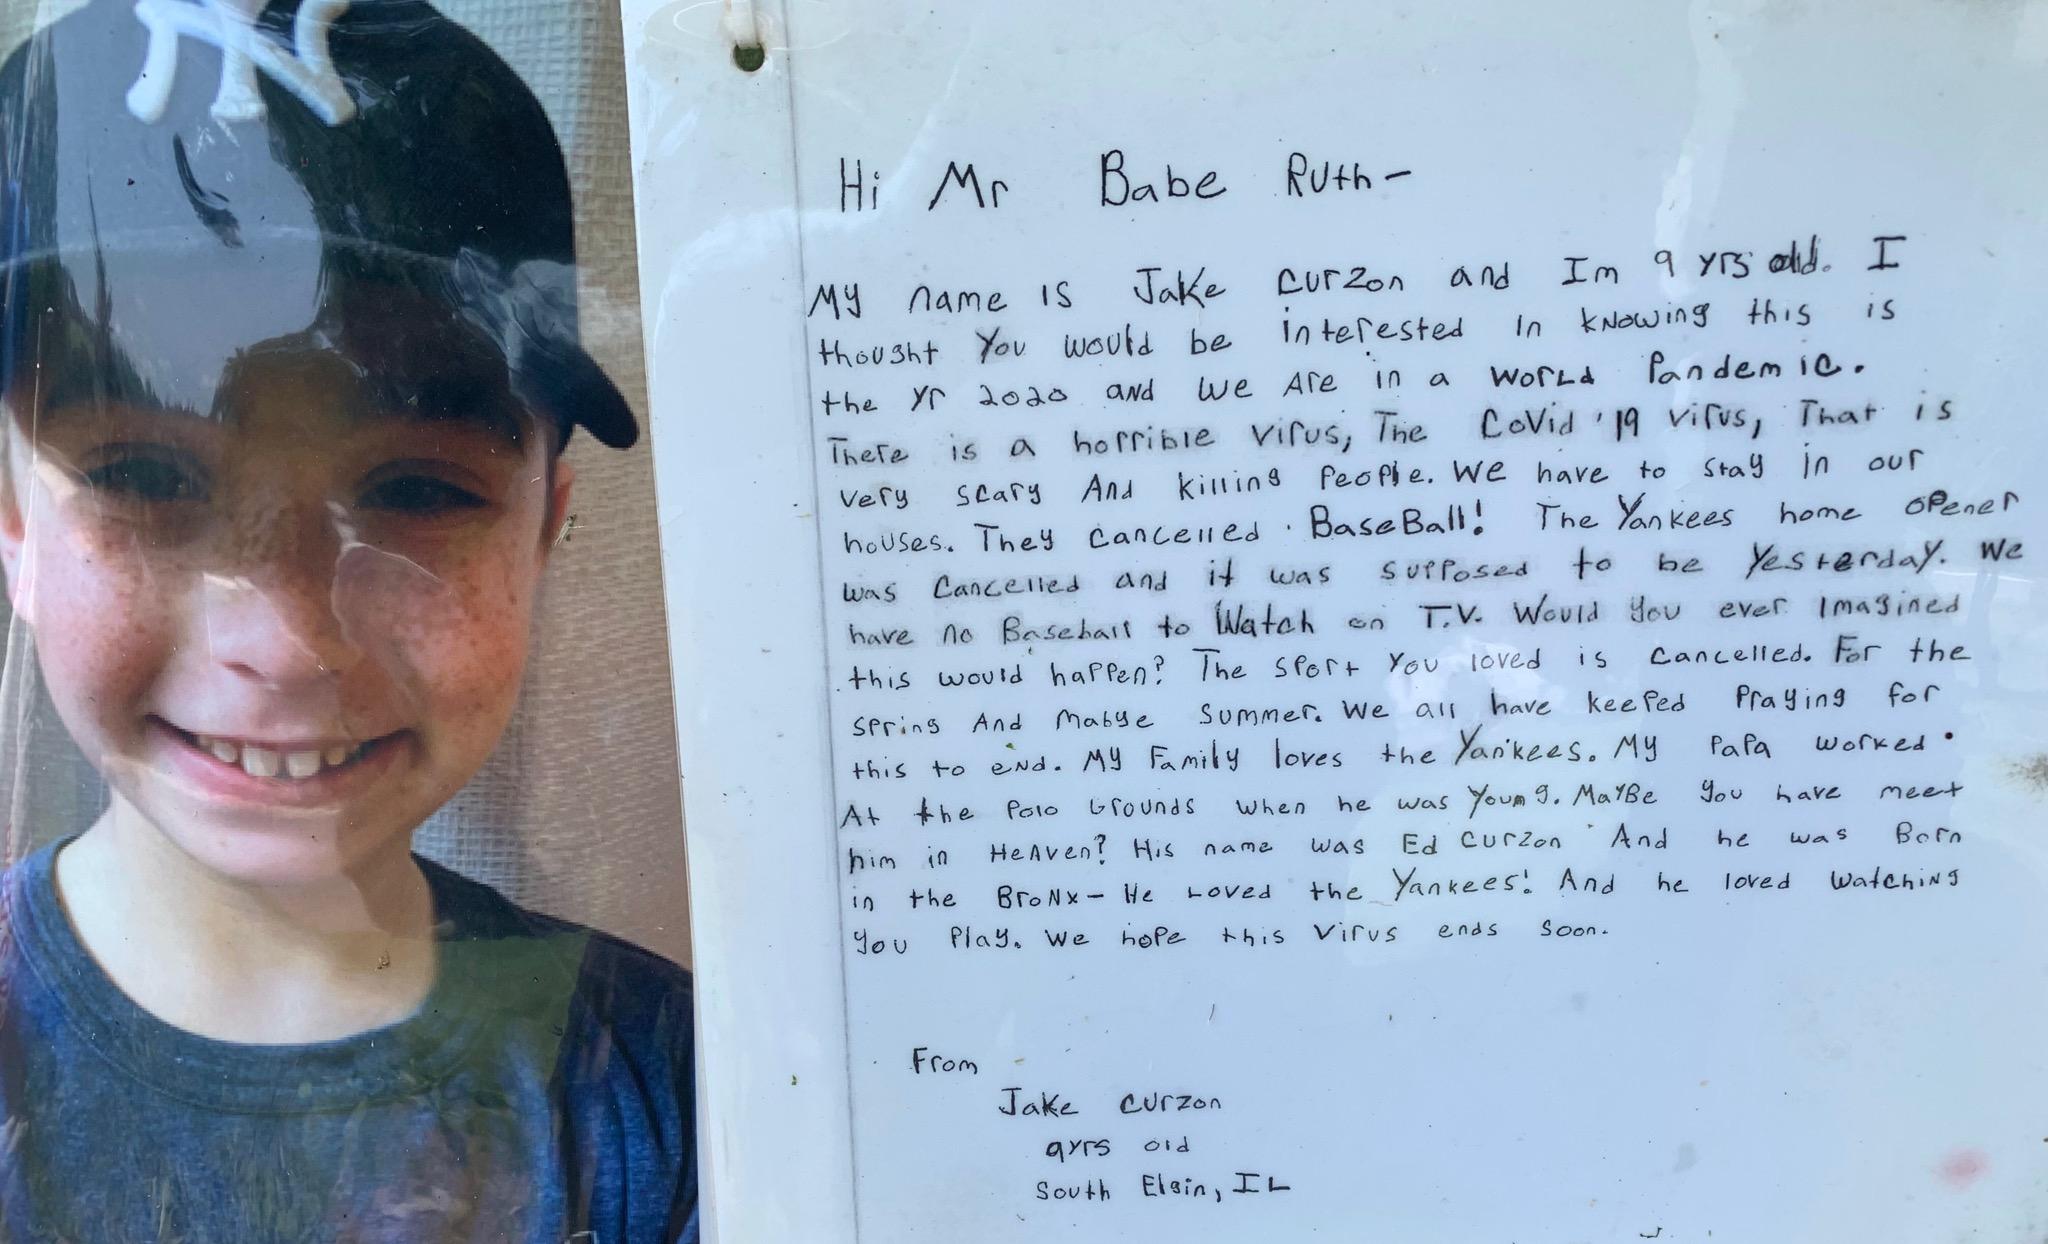 NY
Hi Mr Babe Ruth-
My name is Jake Curzon and Im 9 yrs old. I
thought you would be interested in knowing this is
the yr 2020 and we are in a world Pandemic.
There is a horrible virus, The CoVid '19 virus, That is
very scary And killing People. We have to stay in our
houses. They cancelled BaseBall! The Yankees home opener
was cancelled and it was supposed to be Yesterday. We
have no Baseball to Watch on T.V. Would you ever Imagined
this would happen? The sport you loved is cancelled. For the
spring And Mabye Summer. We all have keeped Praying for
this to end. My Family loves the Yankees. My Papa worked
At the Polo Grounds when he was young. MayBe you have meet
him in HeAven? His name was Ed Curzon And he was Born
in the BroNx- He Loved the Yankees! And he loved watching
you Play. We hope this virus ends soon.
From
Jake Curzon
9yrs old
South Elgin, IL